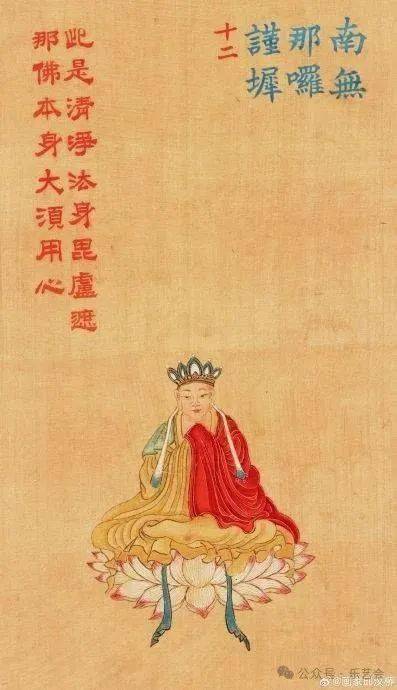 南無
那囉
謹墀
十二
此是清淨法身毘盧遮
那佛本身大須用心
公众号·乐艺会
@画家